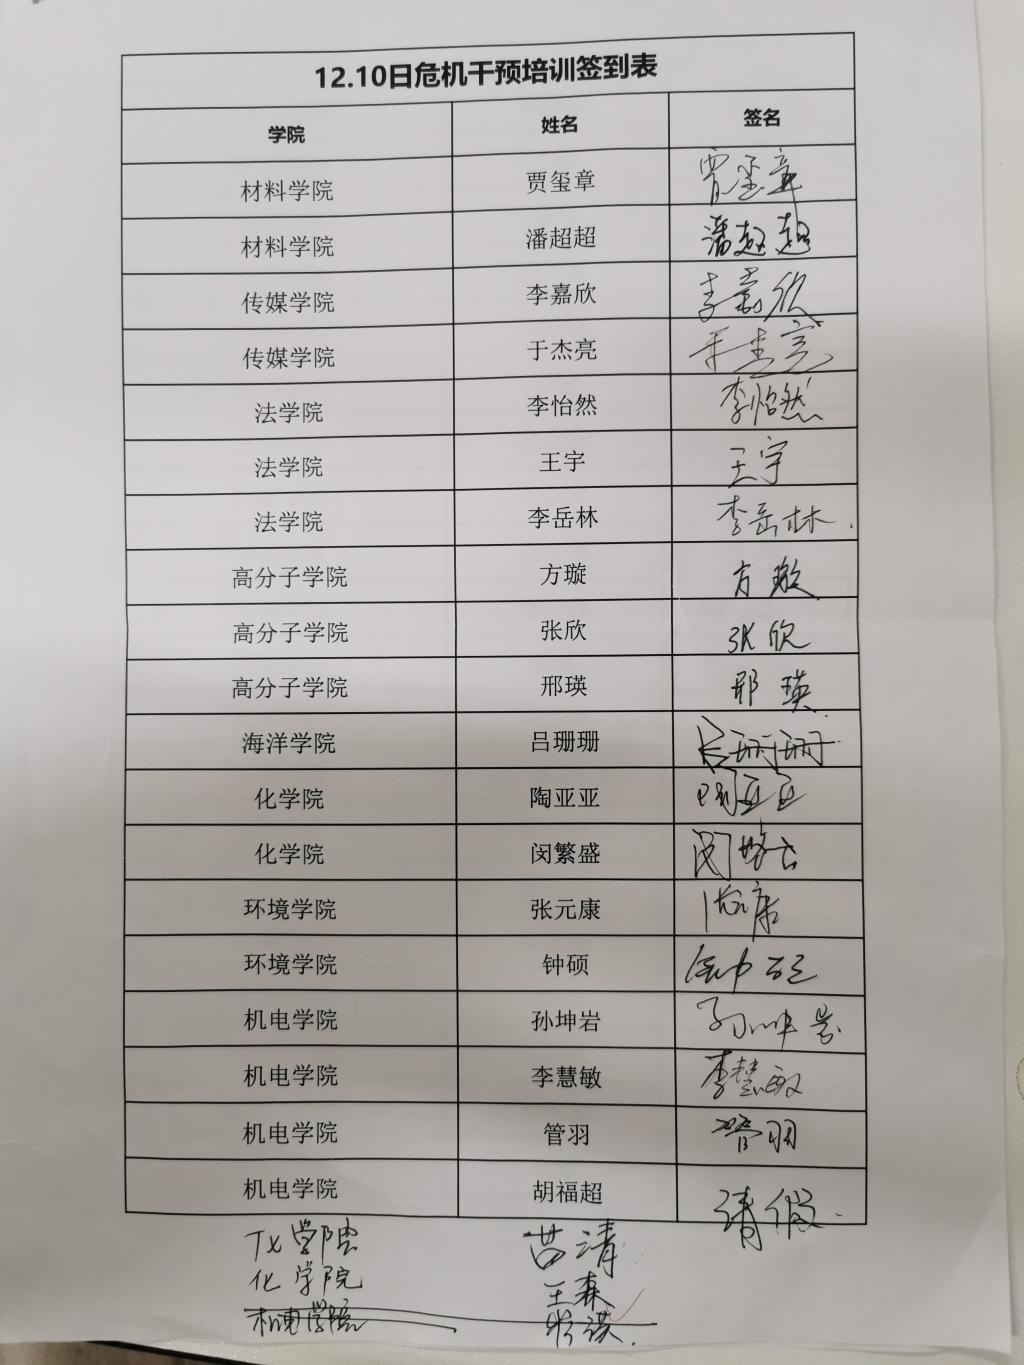 12.10日危机干预培训签到表
学院 姓名 签名
材料学院 贾玺章 贾玺章
材料学院 潘超超 潘超超
传媒学院 李嘉欣 李嘉欣
传媒学院 于杰亮 于杰亮
法学院 李怡然 李怡然
法学院 王宇 王宇
法学院 李岳林 李岳林.
高分子学院 方璇 方璇
高分子学院 张欣 张欣
高分子学院 邢瑛 邢瑛
海洋学院 吕珊珊 吕珊珊
化学院 陶亚亚 陶亚亚
化学院 闵繁盛 闵繁盛
环境学院 张元康 张元康
环境学院 钟硕 钟硕
机电学院 孙坤岩 孙坤岩
机电学院 李慧敏 李慧敏
机电学院 管羽 管羽
机电学院 胡福超 请假.
化学院 苗清
化学院 王森
机电学院